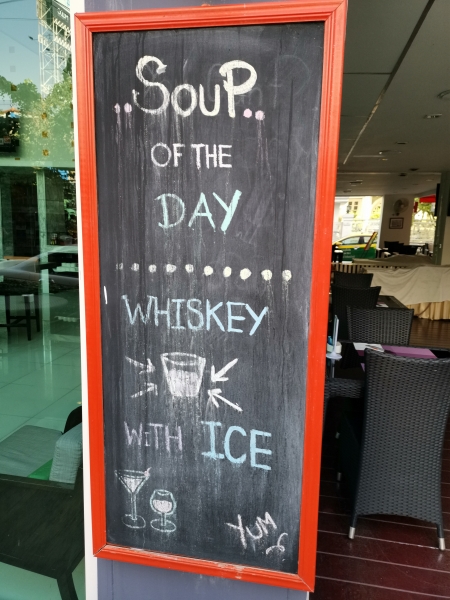 ..SouP..
OF THE
DAY
WHISKEY
WITH ICE
YUM